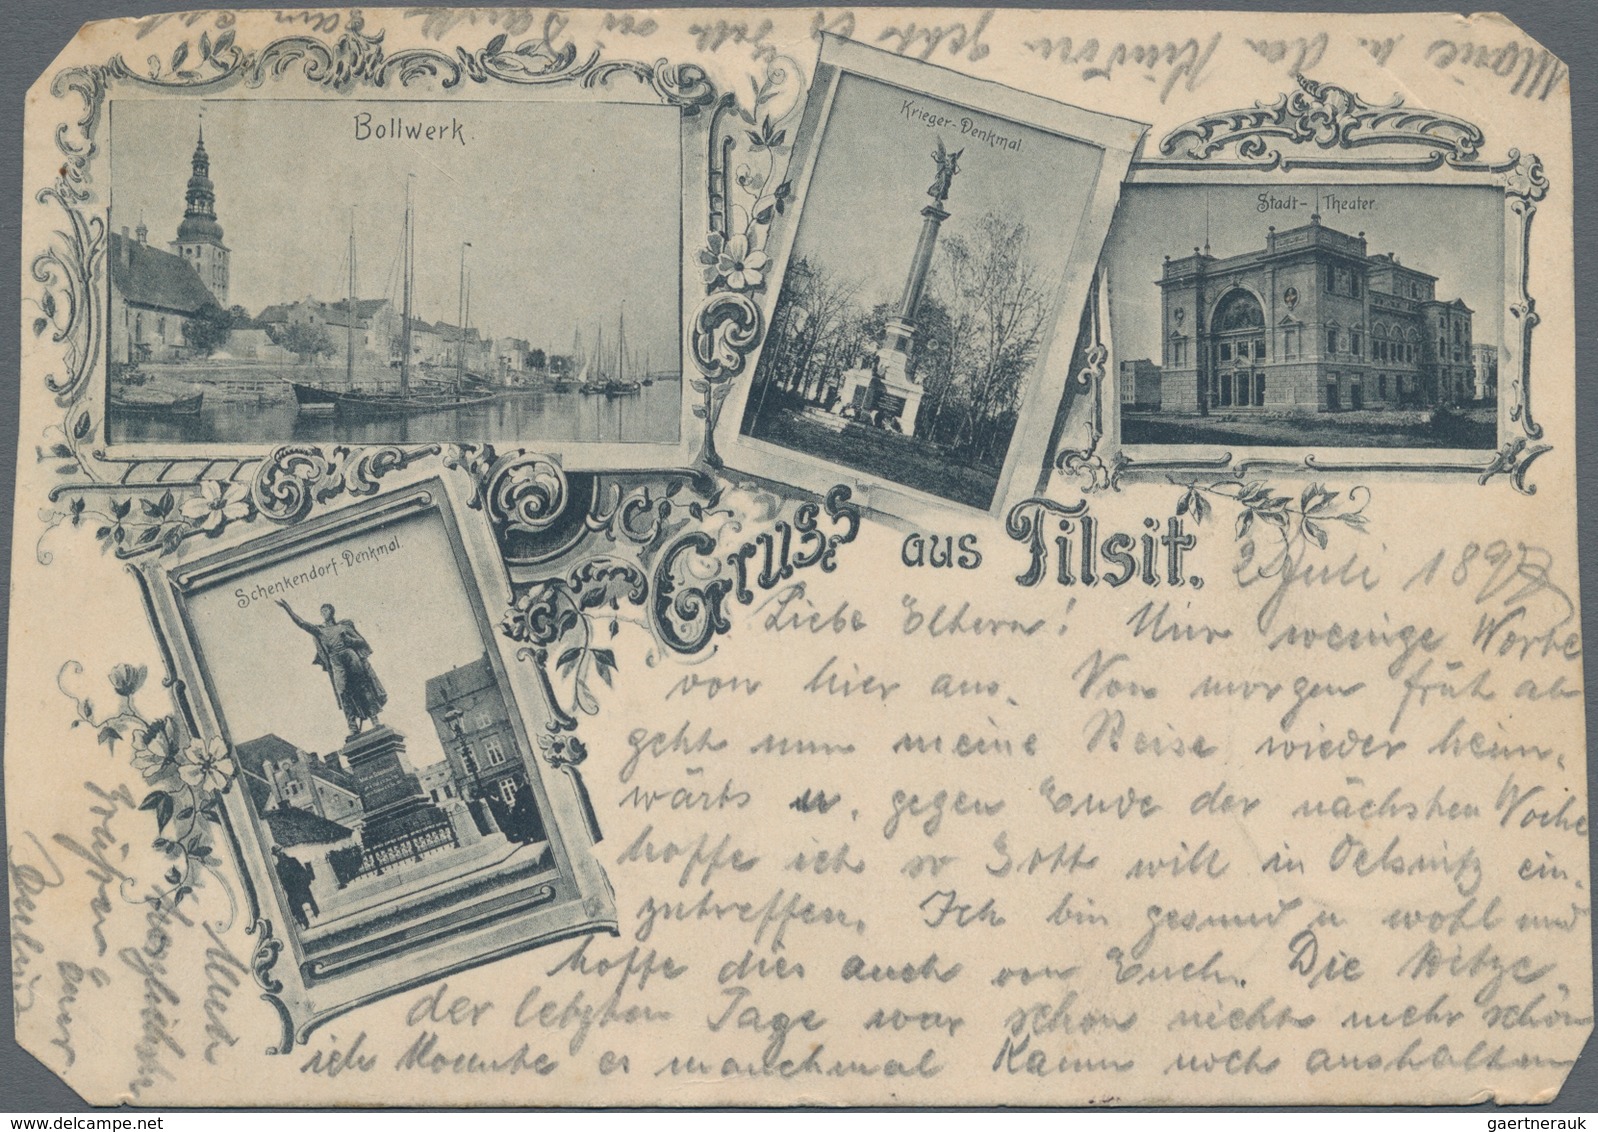 Bollwerk.
Krieger-Denkmal
Stadt-Theater.
Schenkendorf-Denkmal.
Gruss aus Tilsit.
2 Juli 1897
Liebe Eltern! Nur wenige Worte
von hier aus. Von morgen früh ab
geht nun meine Reise wieder heim-
wärts u. gegen Ende der nächsten Woche
hoffe ich so Gott will in Oelsnitz ein-
zutreffen. Ich bin gesund u wohl und
hoffe dies auch von Euch. Die Hitze
der letzten Tage war schon nicht mehr schön
ich konnte es manchmal kaum noch aushalten
Mit
herzlichsten
Grüßen
Euer
Marie u. den Kindern geht es
gut
delcampe.net
gaertnerauk